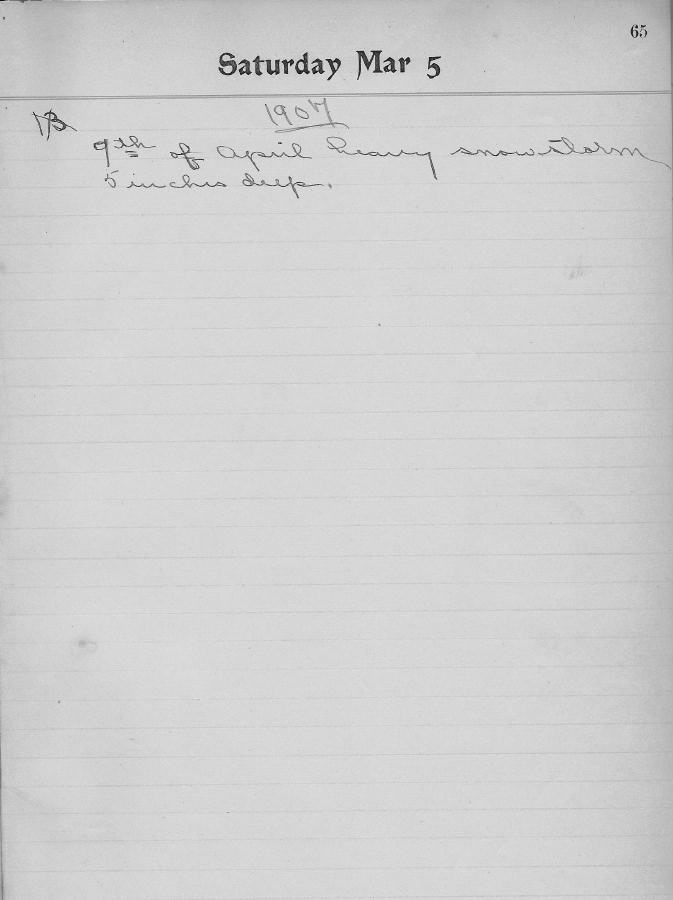 65
Saturday Mar 5
1907
9th of April heavy snowstorm
5 inches deep.